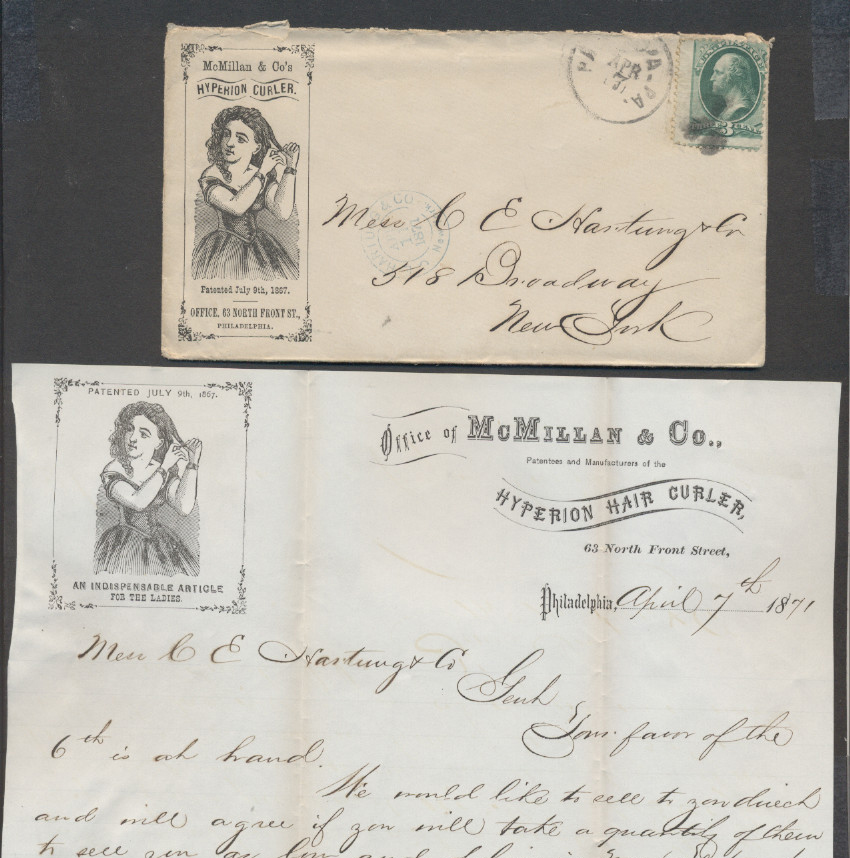 McMillan & Co's
HYPERION CURLER.
Patented July 9th, 1867.
OFFICE, 63 NORTH FRONT ST.,
PHILADELPHIA.
APR
7
PA.
3
Mess C E Hastung & Co
518 Broadway
New York
PATENTED JULY 9th, 1867.
AN INDISPENSABLE ARTICLE
FOR THE LADIES.
Office of McMILLAN & Co.,
Patentees and Manufacturers of the
HYPERION HAIR CURLER,
63 North Front Street,
Philadelphia, April 7th 1871
Mess C E Hastung & Co
Gents
Your favor of the
6th is at hand.
We would like to sell to you direct
and will agree if you will take a quantity of them
to sell you as low